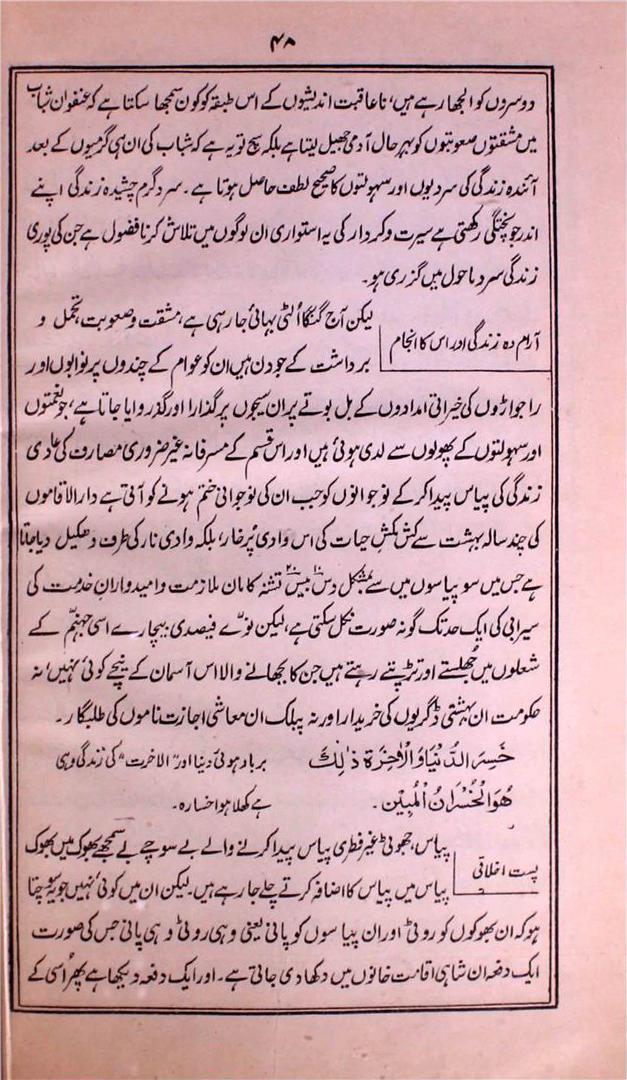 ۴۸
دوسروں کو الجھا رہے ہیں، ناعاقبت اندیشوں کے اس طبقہ کو کون سمجھا سکتا ہے کہ عنفوان شباب
میں مشقتوں صعوبتوں کو بہر حال آدمی جھیل لیتا ہے بلکہ سچ تو یہ ہے کہ شباب کی ان ہی گرمیوں کے بعد
آئندہ زندگی کی سردیوں اور سہولتوں کا صحیح لطف حاصل ہوتا ہے۔ سرد گرم چشیدہ زندگی اپنے
اندر جو پختگی رکھتی ہے سیرت و کردار کی یہ استواری ان لوگوں میں تلاش کرنا فضول ہے جن کی پوری
زندگی سرد ماحول میں گزری ہو۔
آرام دہ زندگی اور اس کا انجام
لیکن آج گنگا اُلٹی بہائی جا رہی ہے، مشقت و صعوبت تحمل و
برداشت کے جو دن ہیں ان کو عوام کے چندوں پر نوابوں اور
راجواڑوں کی خیراتی امدادوں کے بل بوتے پر ان سیجوں پر گذارا اور گذروایا جاتا ہے، جو نعمتوں
اور سہولتوں کے پھولوں سے لدی ہوئی ہیں اور اس قسم کے مسرفانہ غیر ضروری مصارف کی عادی
زندگی کی پیاس پیدا کر کے نوجوانوں کو جب ان کی نوجوانی ختم ہونے کو آتی ہے دارالاقاموں
کی چند سالہ بہشت سے کش مکش حیات کی اس وادی پُر خار، بلکہ وادی نار کی طرف دھکیل دیا جاتا
ہے جس میں سو پیاسوں میں سے بمشکل دس ۱۰ بیس ۲۰ تشنہ کامان ملازمت و امیدواران خدمت کی
سیرابی کی ایک حد تک گونہ صورت نکل سکتی ہے، لیکن نوّے فیصدی بیچارے اسی جہنّم کے
شعلوں میں جھلستے اور تڑپتے رہتے ہیں جن کا بجھانے والا اس آسمان کے نیچے کوئی نہیں، نہ
حکومت ان بہشتی ڈگریوں کی خریدار اور نہ پبلک ان معاشی اجازت ناموں کی طلبگار۔
خَسِرَ الدُّنْيَا وَالْاٰخِرَةَ ذٰلِكَ
هُوَ الْخُسْرَانُ الْمُبِيْن۔
برباد ہوئی دنیا اور "الاخرت" کی زندگی وہی
ہے کھلا ہوا خسارہ۔
پست اخلاقی
پیاس، جھوٹی غیر فطری پیاس پیدا کرنے والے بے سوچے بے سمجھے بھوک میں بھوک
پیاس میں پیاس کا اضافہ کرتے چلے جا رہے ہیں۔ لیکن ان میں کوئی نہیں جو یہ سوچتا
ہو کہ ان بھوکوں کو روٹی اور ان پیاسوں کو پانی یعنی وہی روٹی وہی پانی جس کی صورت
ایک دفعہ ان شاہی اقامت خانوں میں دکھا دی جاتی ہے۔ اور ایک دفعہ دیکھا ہے پھر اُسی کے